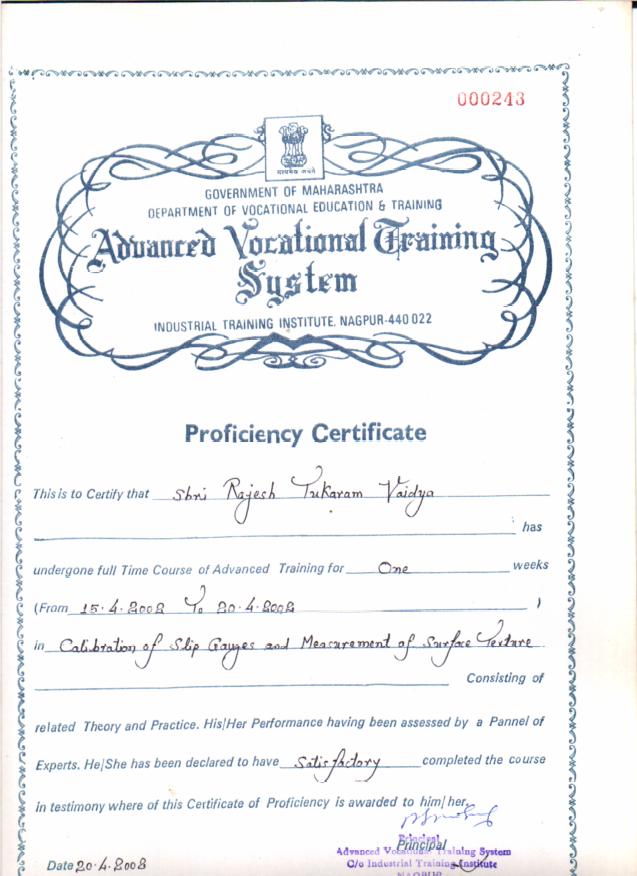 000243
सत्यमेव जयते
GOVERNMENT OF MAHARASHTRA
DEPARTMENT OF VOCATIONAL EDUCATION & TRAINING
Advanced Vocational Training
System
INDUSTRIAL TRAINING INSTITUTE. NAGPUR-440 022
Proficiency Certificate
This is to Certify that Shri Rajesh Tukaram Vaidya
has
undergone full Time Course of Advanced Training for One weeks
(From 15.4.2002 To 20.4.2002 )
in Calibration of Slip Gauges and Measurement of Surface Texture
Consisting of
related Theory and Practice. His/Her Performance having been assessed by a Pannel of
Experts. He/She has been declared to have Satisfactory completed the course
in testimony where of this Certificate of Proficiency is awarded to him/her.
Principal
Principal
Advanced Vocational Training System
C/o Industrial Training Institute
Date 20.4.2002
NAGPUR